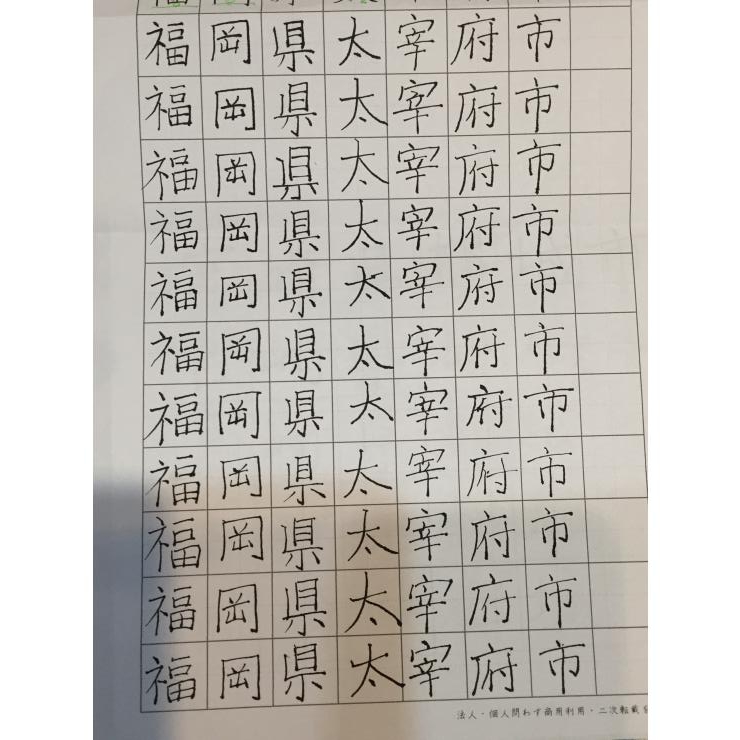 福岡県太宰府市
福岡県太宰府市
福岡県太宰府市
福岡県太宰府市
福岡県太宰府市
福岡県太宰府市
福岡県太宰府市
福岡県太宰府市
福岡県太宰府市
福岡県太宰府市
福岡県太宰府市
法人・個人問わず商用利用・二次転載